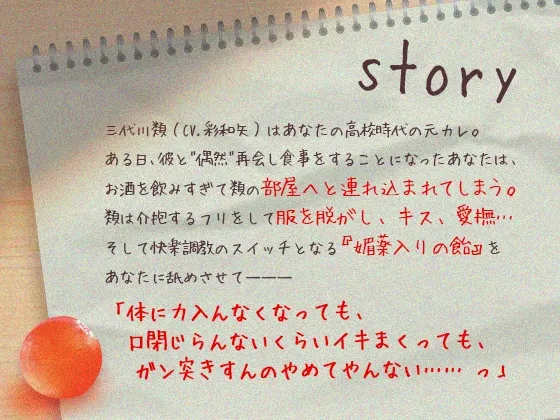 story
三代川類（CV.彩和矢）はあなたの高校時代の元カレ。
ある日、彼と"偶然"再会し食事をすることになったあなたは、
お酒を飲みすぎて類の部屋へと連れ込まれてしまう。
類は介抱するフリをして服を脱がし、キス、愛撫…
そして快楽調教のスイッチとなる『媚薬入りの飴』を
あなたに舐めさせて———
「体に力入んなくなっても、
口閉じらんないくらいイキまくっても、
ガン突きすんのやめてやんない…… っ」